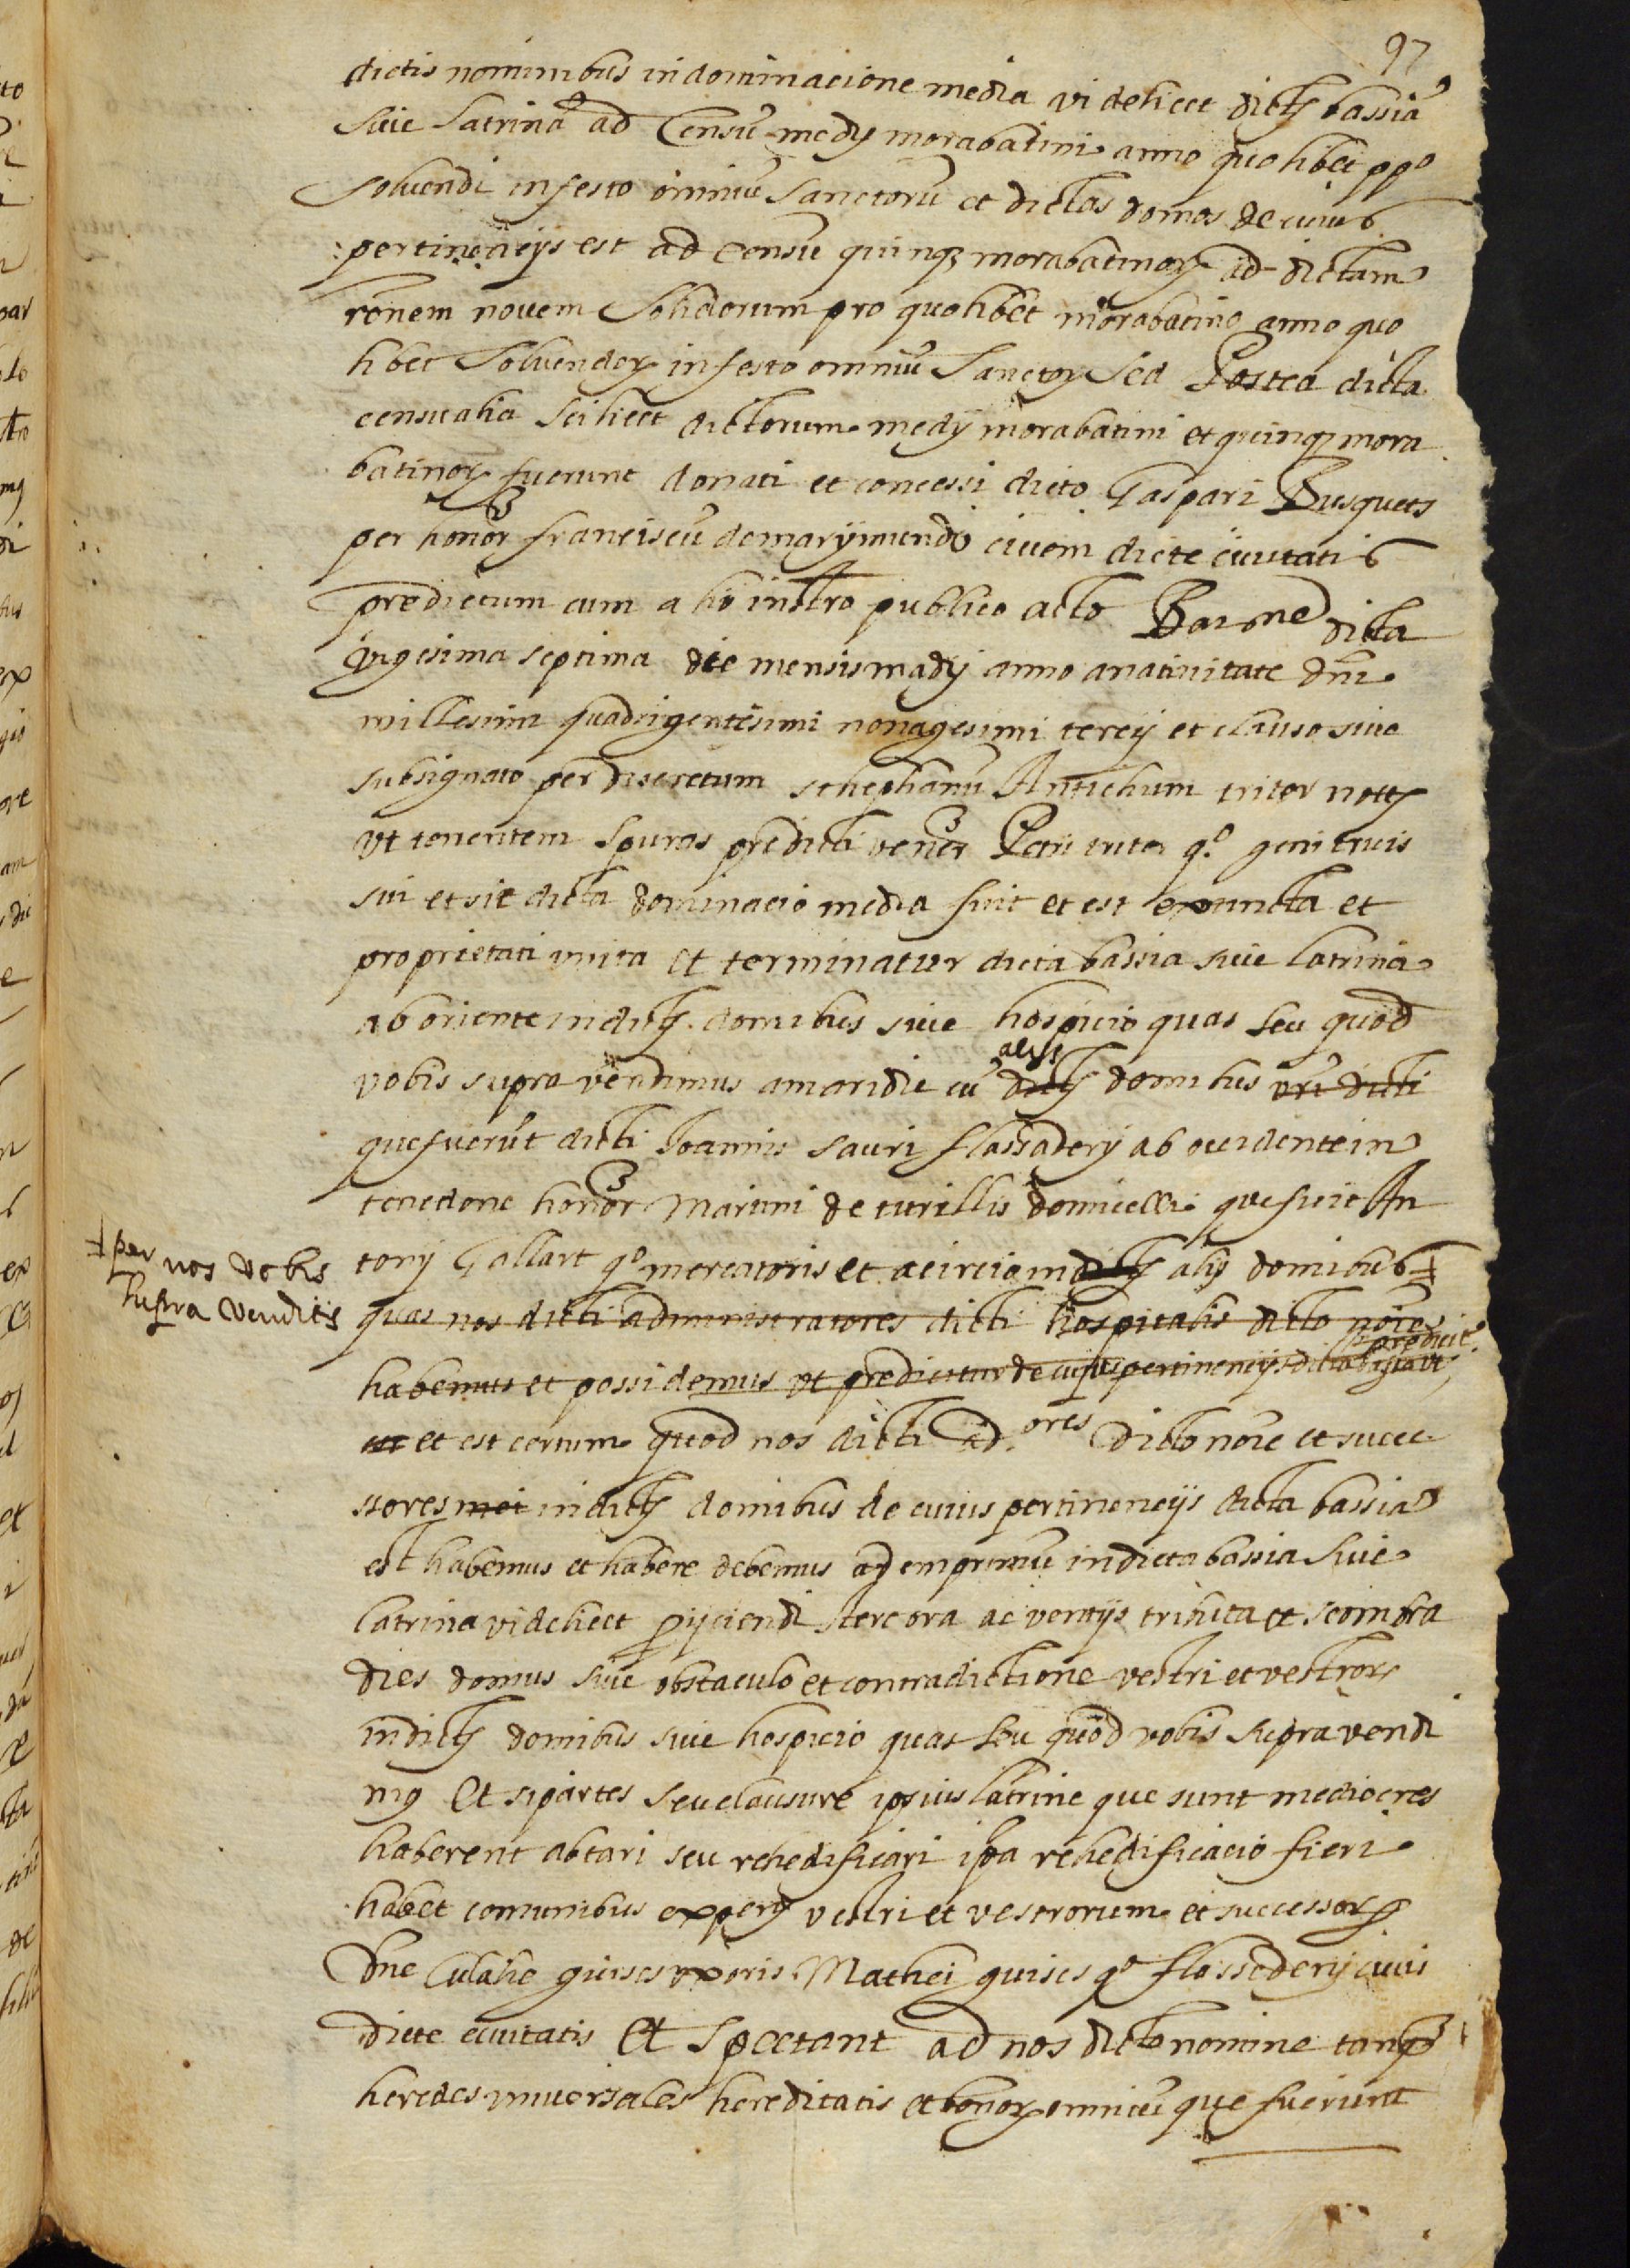 97
dictis nominibus in dominacione media videlicet dictȝ bassiā
sive latrinā ad Censū medij morabatini anno quolibet ppº
solvendi in festo omniū Sanctorū et dictas domos de cuius
pertinēcijs est ad Censū quinqȝ morabatinorȝ ad dictam
rōnem novem Solidorum pro quolibet morabatino anno quo
libet Solvendorȝ in festo omniū Sanctorȝ Sed Postea dicta
censualia scilicet dictorum medij morabatini et quinqȝ mora
batinorȝ fuerunt donati et concessi dicto Gaspari Busquets
per honor franciscū de marijmundo civem dicte civitatis
predictum cum alio instro publico acto Barone dicta
vigesima septima die mensis madij anno a nativitate dnī
millesimi quadrigentesimi nonagesimi tercij et clauso sive
subsignato per discretum stephanū Antichum triter nottȝ
ut tenentem Spuras predicti vener Petri triter qº genitoris
sui et sic dicta dominacio media fuit et est extincta et
proprietati unita et terminatur dicta bassia sive latrina
ab oriente in dictȝ domibus sive hospicio quas seu quod
vobis supra vendimus a maridie cū dictȝ alijs domibus vrī dicti
que fuerūt dicti Joannis Sauri flassaderij ab occidente in
tenedone honor Martini de turillis domicelli que fuit An
tonij Gallart qº mercatoris et a circio in dictȝ alijs domibus ‡
‡ per nos vobis
supra venditis
quas nos dicti administratores dicti hospitalis dicto noīe
habemus et possidemus ut predicitur de cuius pertinencijs dicta bassia ut predicitº
est et est certum quod nos dicti ad.ores dicto noīe et succe
ssores mei in dictȝ domibus de cuius pertinencijs dicta bassia
est habemus et habere debemus ademprimū in dicta bassia sive
latrina videlicet pijciendi stercora ac ventris tributa et scombra
dies domus sive obstaculo et contradictione vestri et vestrorȝ
in dictȝ domibus sive hospicio quas seu quod vobis supra vendi
mꝰ Et si partes seu clausure ipsius latrine que sunt mediocres
haberent abtari seu rehedificari ipā rehedificacio fieri
habet comunibus expenȝ vestri et vestrorum et successorȝ
dne Eulalie guises uxoris Mathei guises qº flassaderij civis
dicte civitatis Et Spectant ad nos dicto nomine tanqȝ
heredes universales hereditatis et bonorȝ omniū que fuerunt